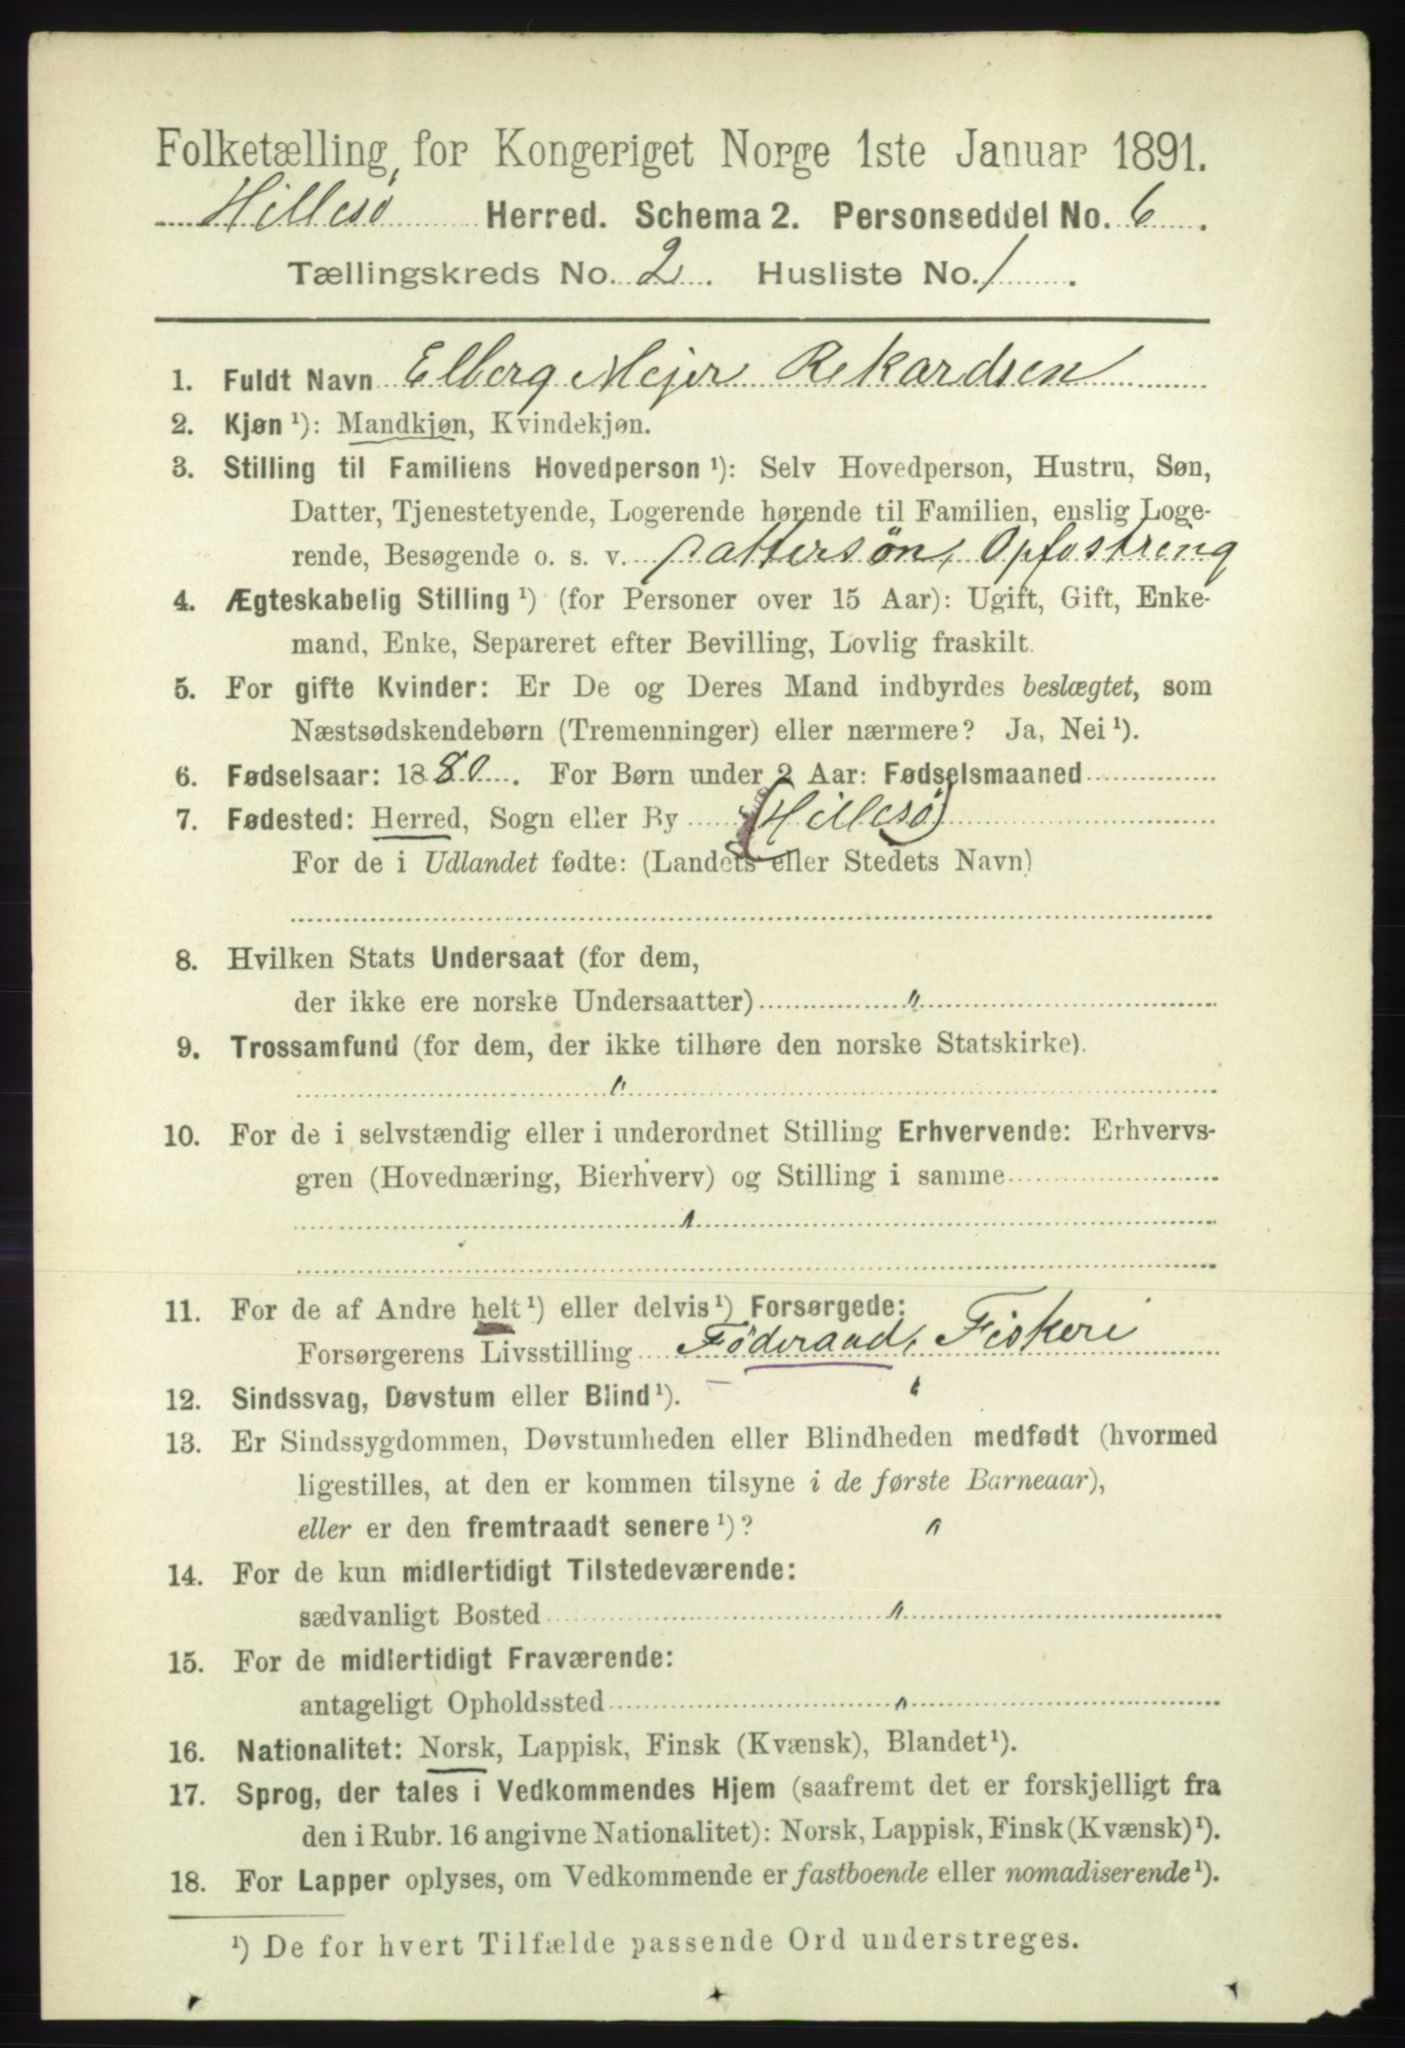 Folketælling for Kongeriget Norge 1ste Januar 1891.
Hillesø Herred. Schema 2. Personseddel No. 6.
Tællingskreds No. 2. Husliste No. 1.
1. Fuldt Navn Elberg Mejer Rekardsen
2. Kjøn ¹): Mandkjøn, Kvindekjøn.
3. Stilling til Familiens Hovedperson ¹): Selv Hovedperson, Hustru, Søn,
Datter, Tjenestetyende, Logerende hørende til Familien, enslig Loge-
rende, Besøgende o. s. v. Dattersøn, Opfostring
4. Ægteskabelig Stilling ¹) (for Personer over 15 Aar): Ugift, Gift, Enke-
mand, Enke, Separeret efter Bevilling, Lovlig fraskilt.
5. For gifte Kvinder: Er De og Deres Mand indbyrdes beslægtet, som
Næstsødskendebørn (Tremenninger) eller nærmere? Ja, Nei ¹).
6. Fødselsaar: 1880. For Børn under 2 Aar: Fødselsmaaned
7. Fødested: Herred, Sogn eller By (Hillesø)
For de i Udlandet fødte: (Landets eller Stedets Navn)
8. Hvilken Stats Undersaat (for dem,
der ikke ere norske Undersaatter) "
9. Trossamfund (for dem, der ikke tilhøre den norske Statskirke).
"
10. For de i selvstændig eller i underordnet Stilling Erhvervende: Erhvervs-
gren (Hovednæring, Bierhverv) og Stilling i samme
"
11. For de af Andre helt ¹) eller delvis ¹) Forsørgede:
Forsørgerens Livsstilling Føderaad, Fiskeri
12. Sindssvag, Døvstum eller Blind ¹). "
13. Er Sindssygdommen, Døvstumheden eller Blindheden medfødt (hvormed
ligestilles, at den er kommen tilsyne i de første Barneaar),
eller er den fremtraadt senere ¹)? "
14. For de kun midlertidigt Tilstedeværende:
sædvanligt Bosted "
15. For de midlertidigt Fraværende:
antageligt Opholdssted "
16. Nationalitet: Norsk, Lappisk, Finsk (Kvænsk), Blandet ¹).
17. Sprog, der tales i Vedkommendes Hjem (saafremt det er forskjelligt fra
den i Rubr. 16 angivne Nationalitet): Norsk, Lappisk, Finsk (Kvænsk) ¹).
18. For Lapper oplyses, om Vedkommende er fastboende eller nomadiserende ¹).
¹) De for hvert Tilfælde passende Ord understreges.